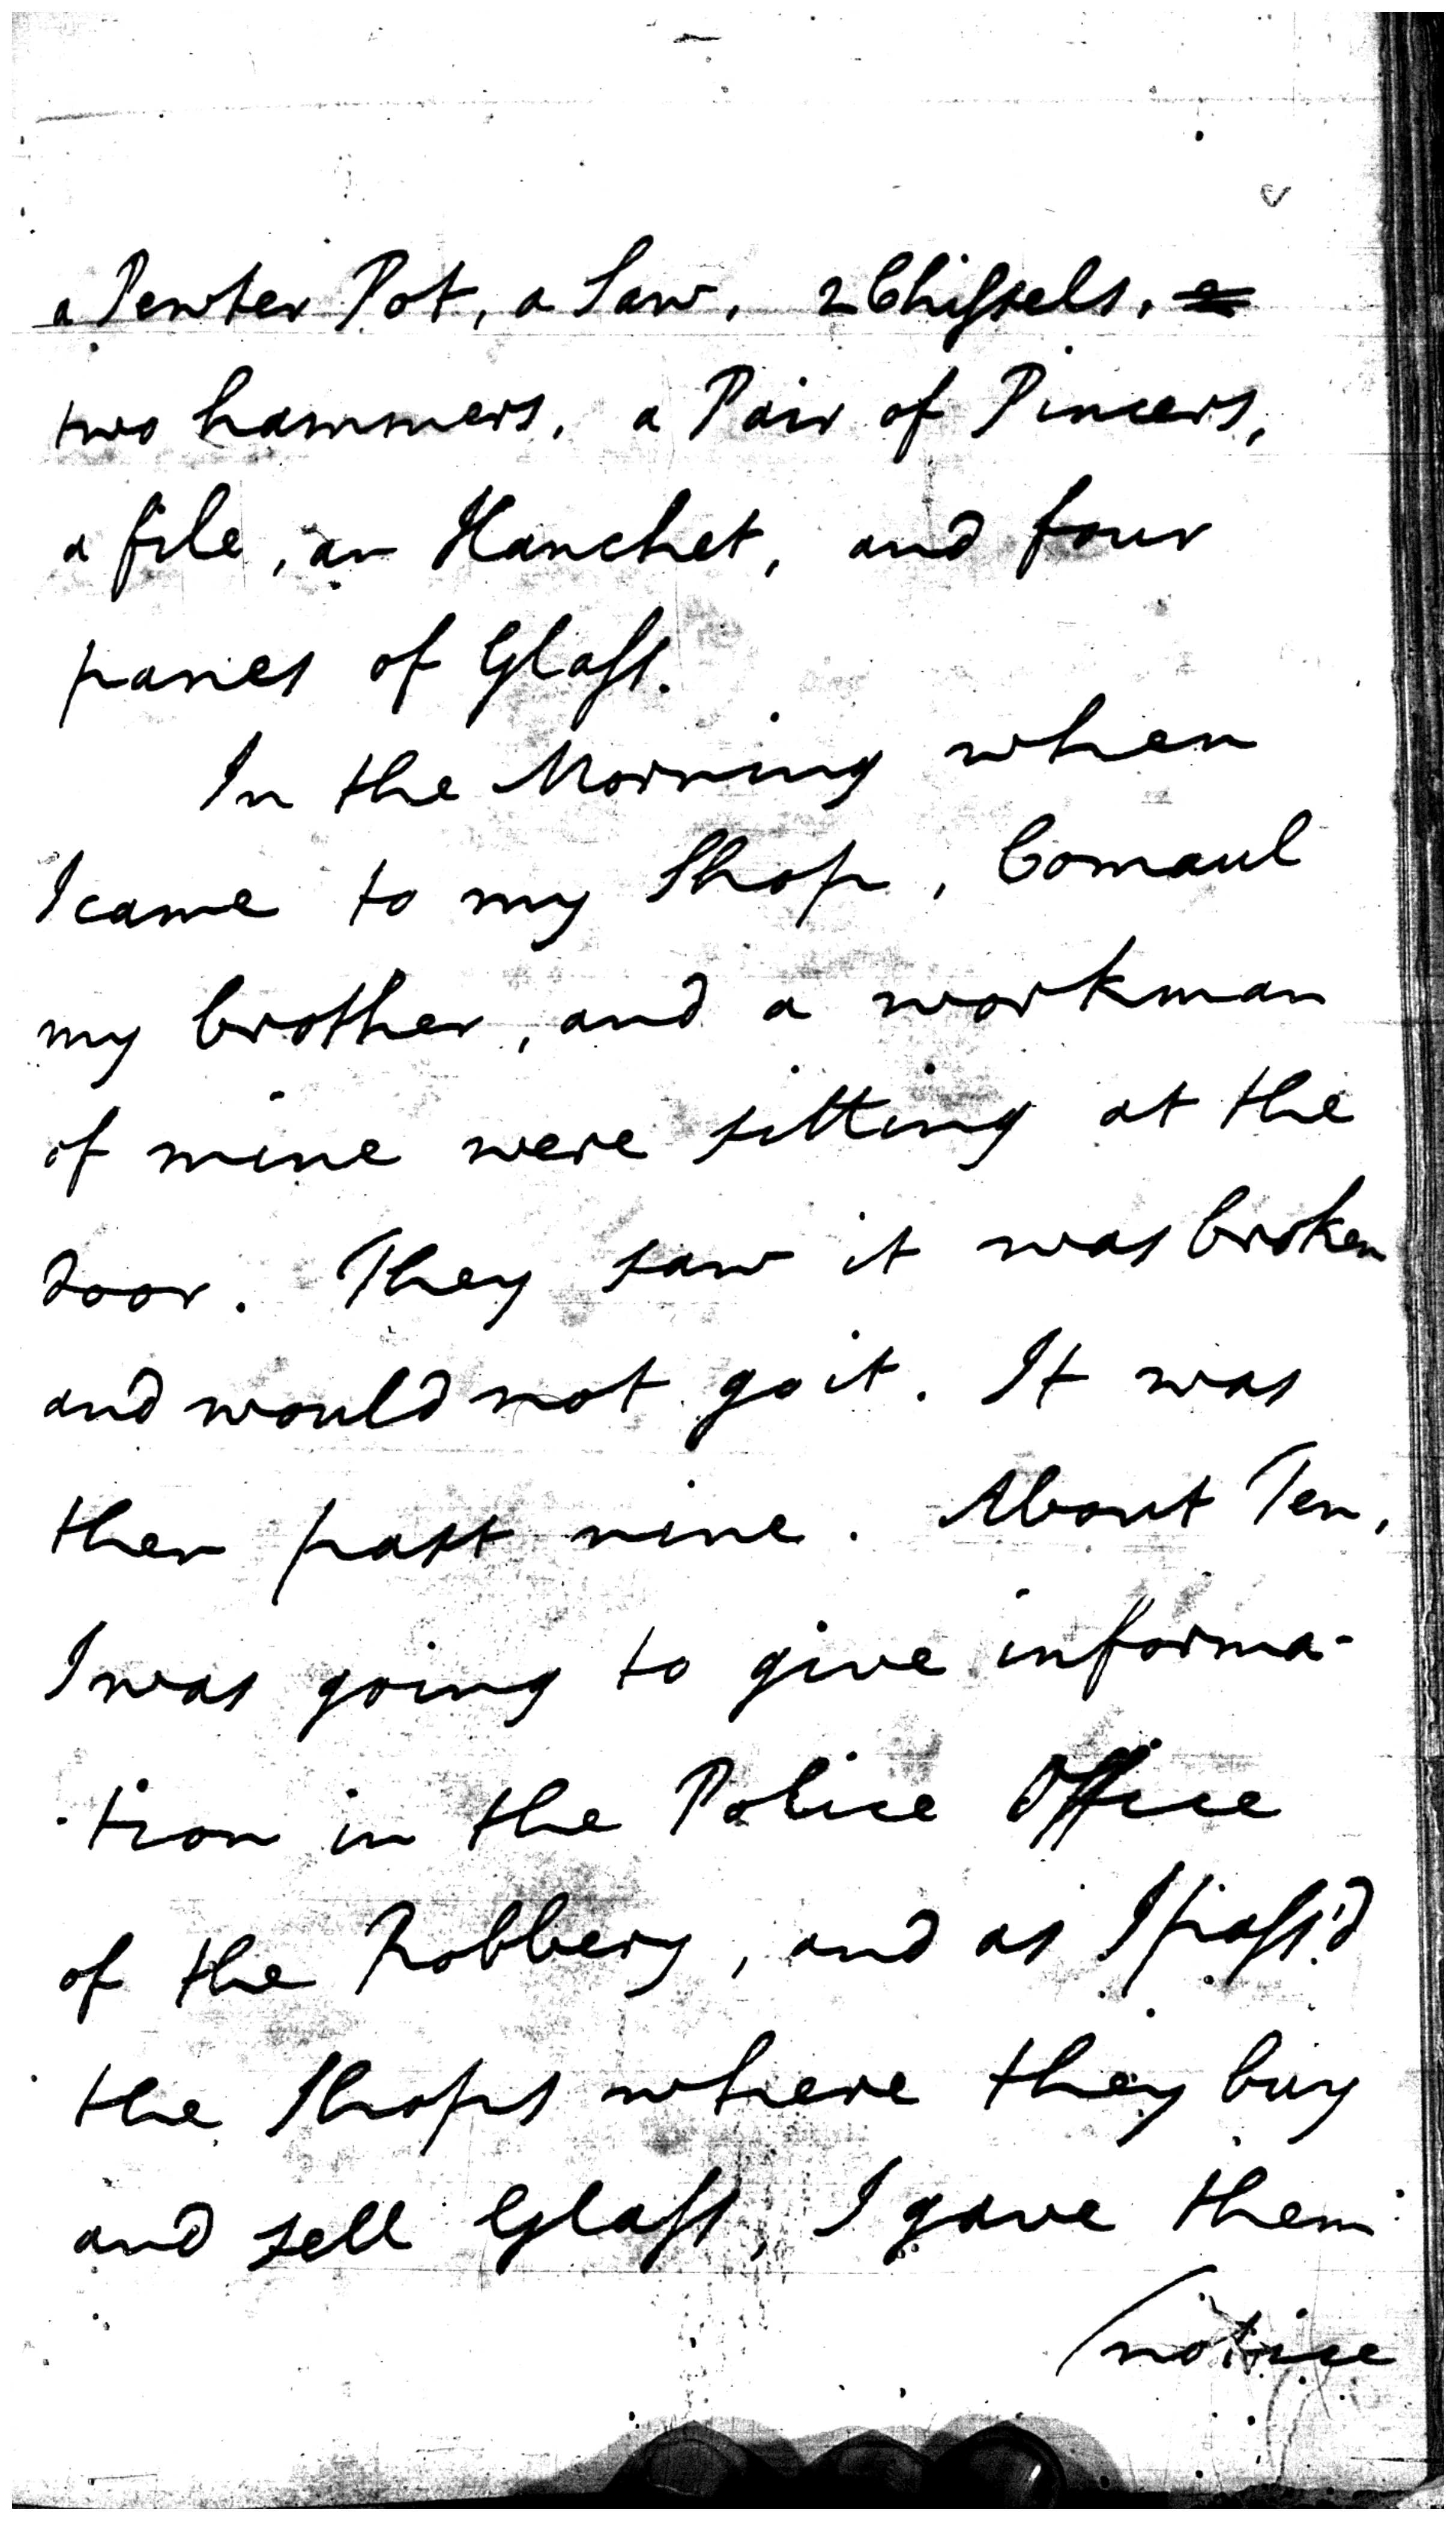 a Pewter Pot, a Saw, 2 Chissels,
two hammers, a Pair of Pincers,
a file, an Hanchet, and four
panes of Glass.
In the Morning when
I came to my Shop, Comaul
my brother, and a workman
of mine were sitting at the
door. They saw it was broken
and would not go it. It was
then past nine. About Ten,
I was going to give informa-
tion in the Police Office
of the Robbery, and as I pass'd
the Shops where they buy
and sell Glass, I gave them
notice